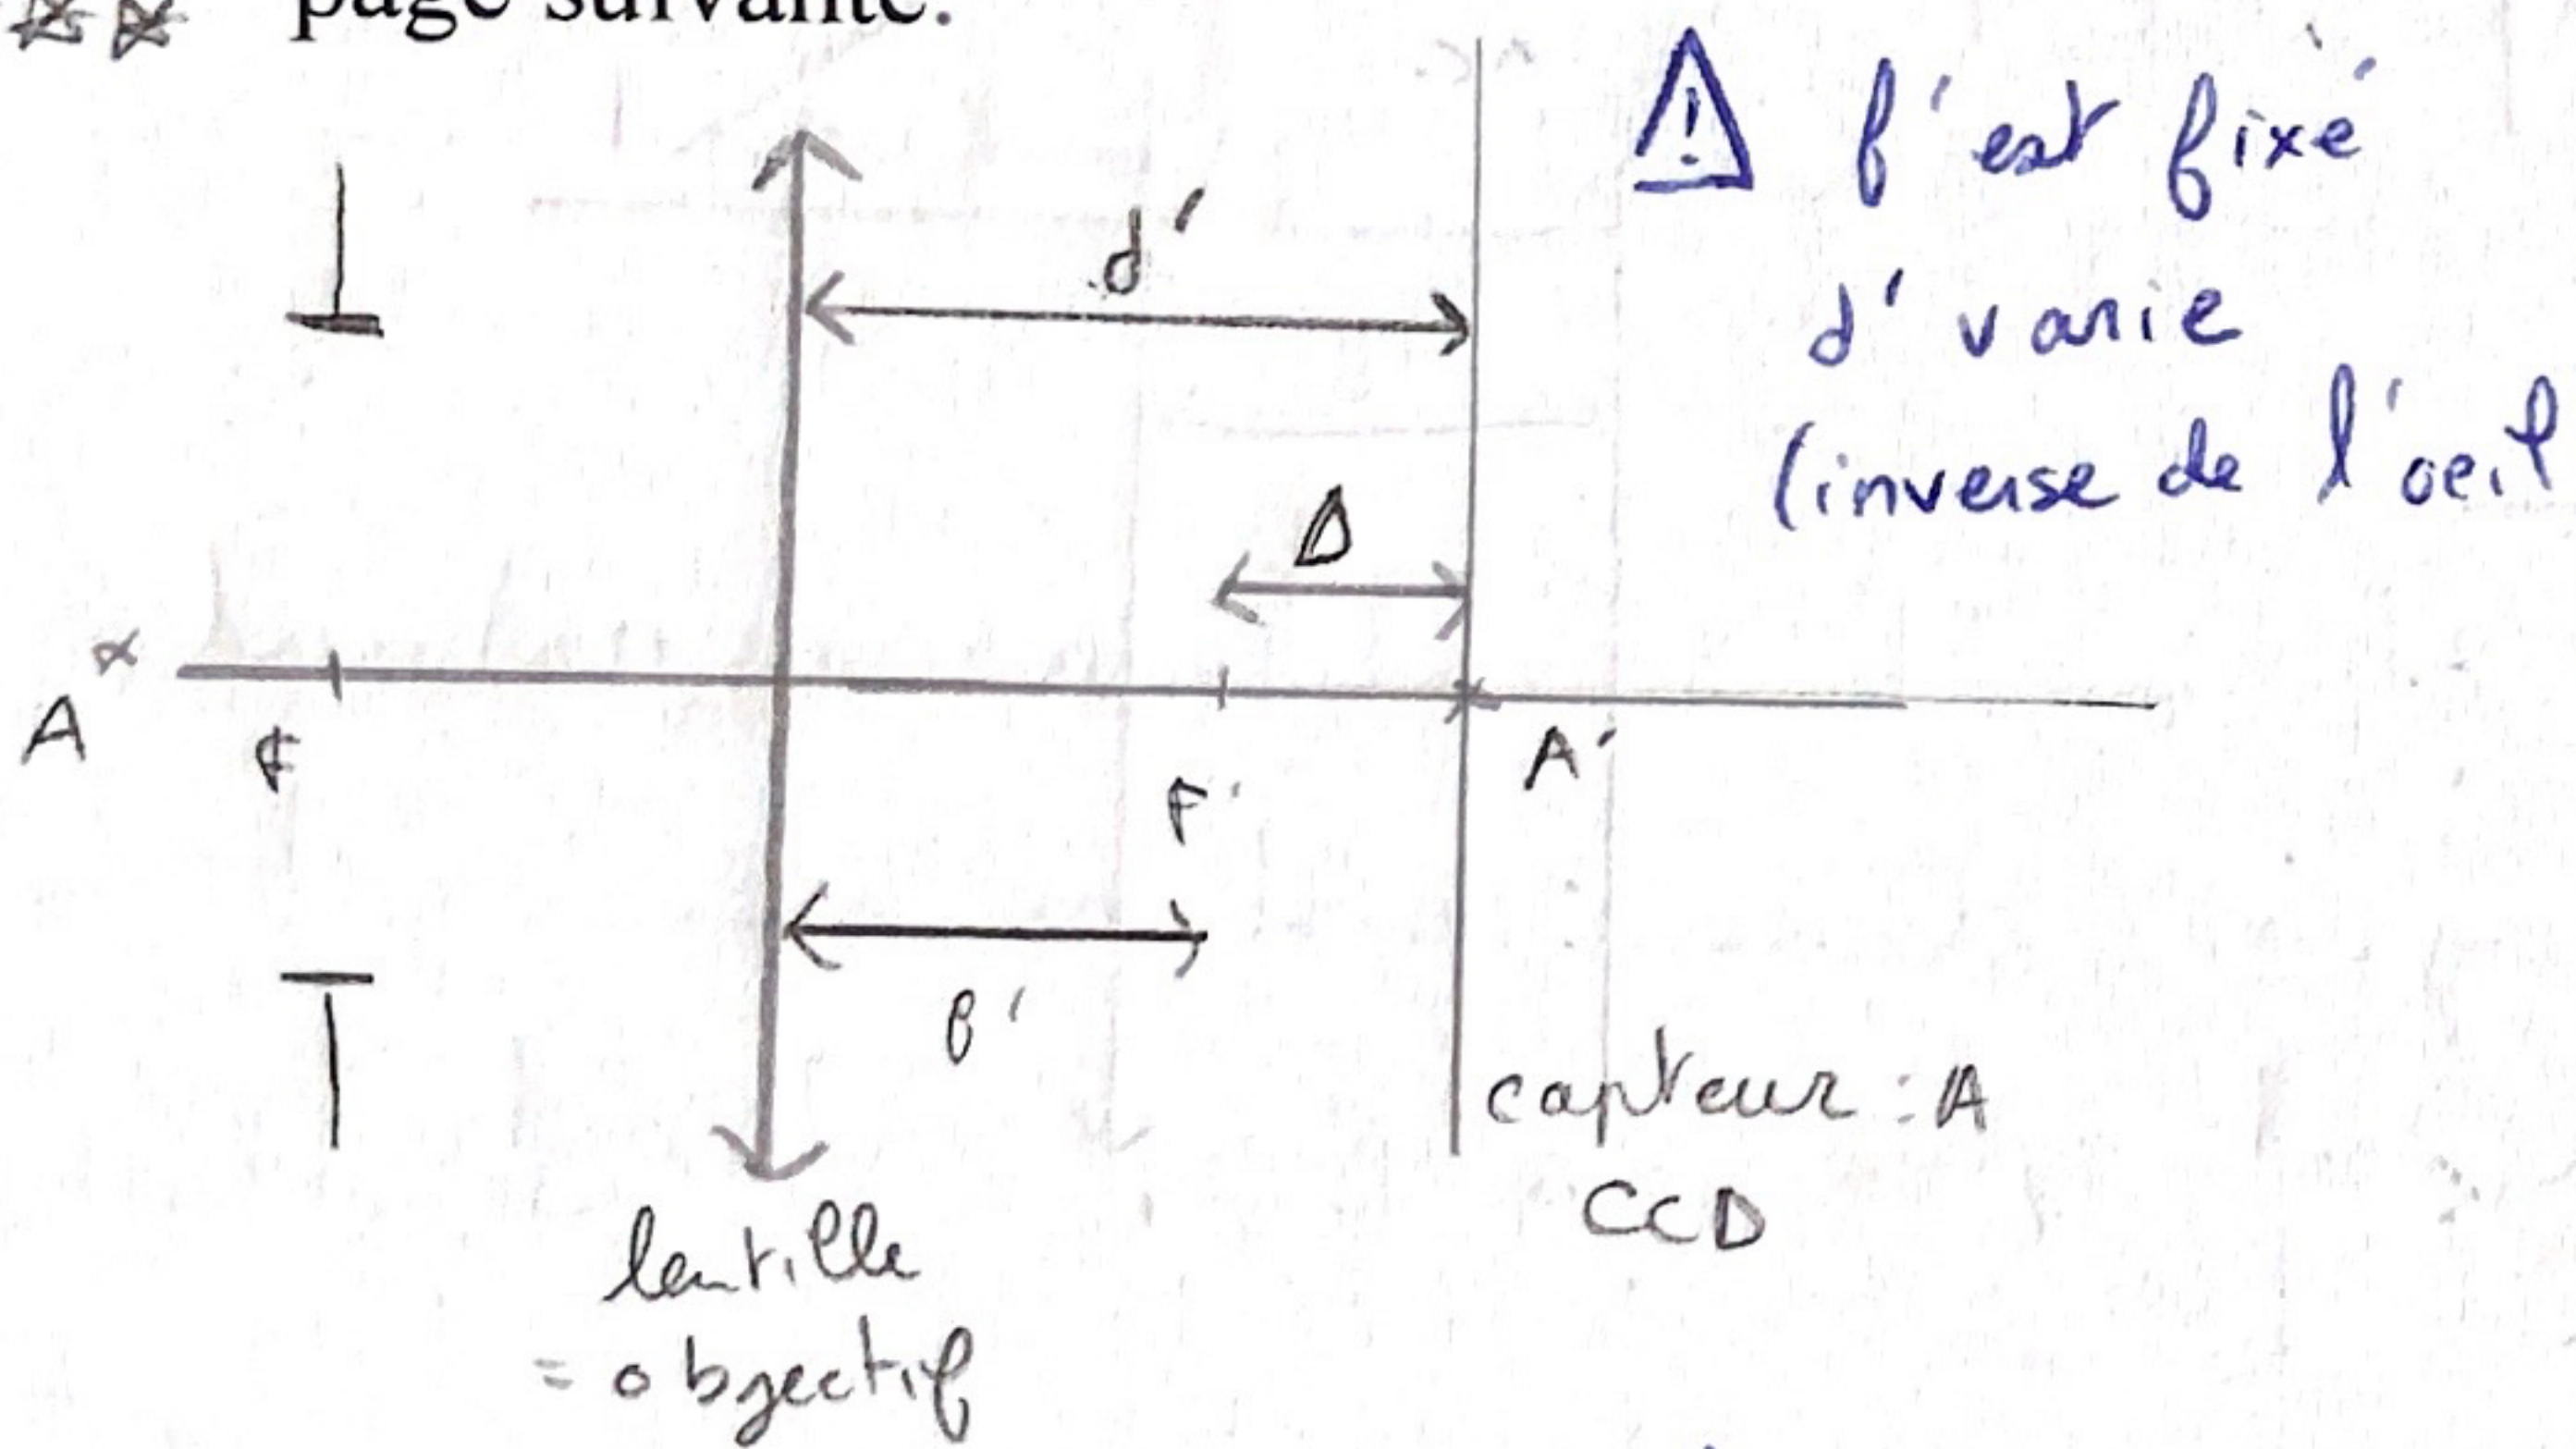 page suivante.
⚠ f' est fixé
d' varie
(inverse de l'oeil
d'
Δ
A
F
F'
A'
f'
capteur : A
CCD
lentille
= objectif